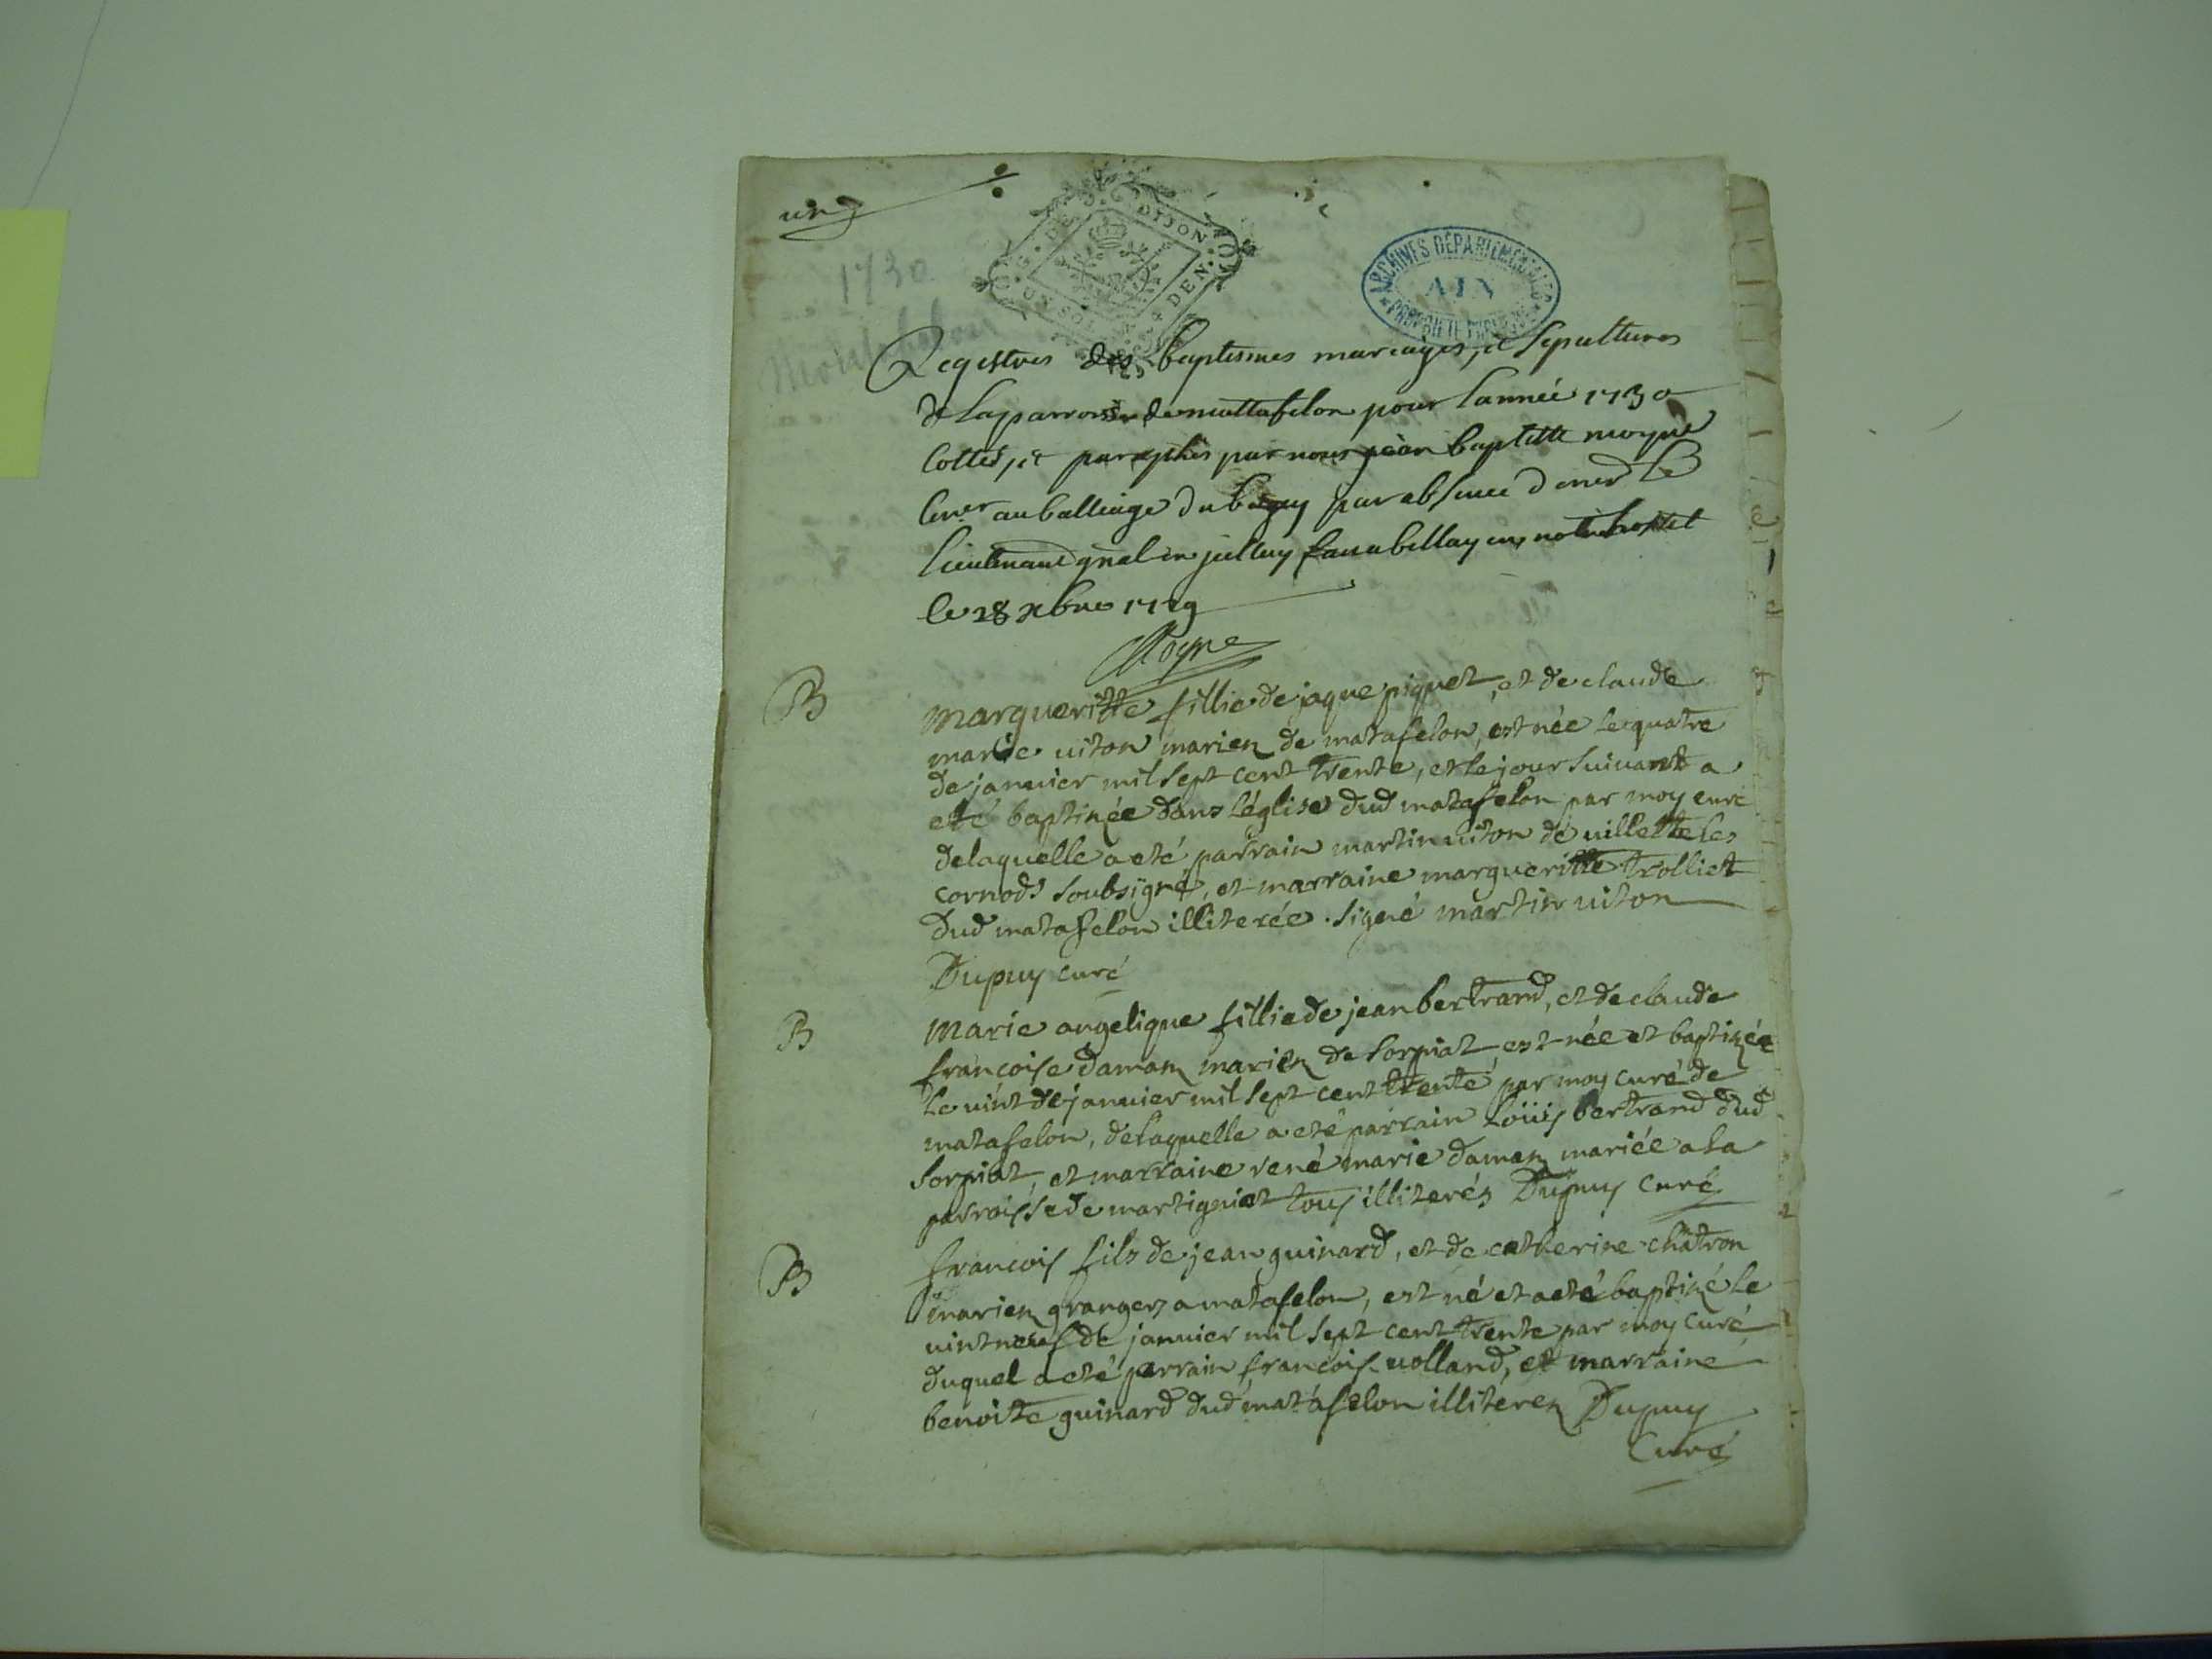 un
1730
DIJON
UN SOL 4 DEN
ARCHIVES DÉPARTEMENTALES
AIN
PROPRIÉTÉ PUBLIQUE
Registres des baptesmes mariages, et sepultures
de la parroisse de mattafelon pour lannée 1730
Cottés, et paraphés par nous jean baptiste moyne
au balliage du bugey par absence de
Lieutenant gnal en a bellay en notre hostel
le 28 xbre 1729
Moyne
B
Margueritte fillie de jaque piquet, et de claude
marie uiton mariez de matafelon, est née le quatre
de januier mil sept cent trente, et le jour suiuant a
eté baptizée dans léglise dud matafelon par moy curé
de laquelle a eté parrain martin uiton de uillette les
cornods soubsigné, et marraine margueritte trolliet
dud matafelon illiterée. signé martin uiton
Dupuy curé
B
Marie angelique fillie de jean bertrand, et de claude
francoise daman mariez de sorpiat, est née et baptizée
le uint de januier mil sept cent trente par moy curé de
matafelon, de laquelle a eté parrain Loüis bertrand dud
sorpiat, et marraine rené marie daman mariée a la
parroisse de martigniat tous illiterés Dupuy curé
B
francois fils de jean guinard, et de catherine chatron
mariez grangers a matafelon, est né et a eté baptizé le
uint neuf de januier mil sept cent trente par moy curé
duquel a eté parrain francois uolland, et marraine
benoite guinard dud matafelon illiterez Dupuy
Curé